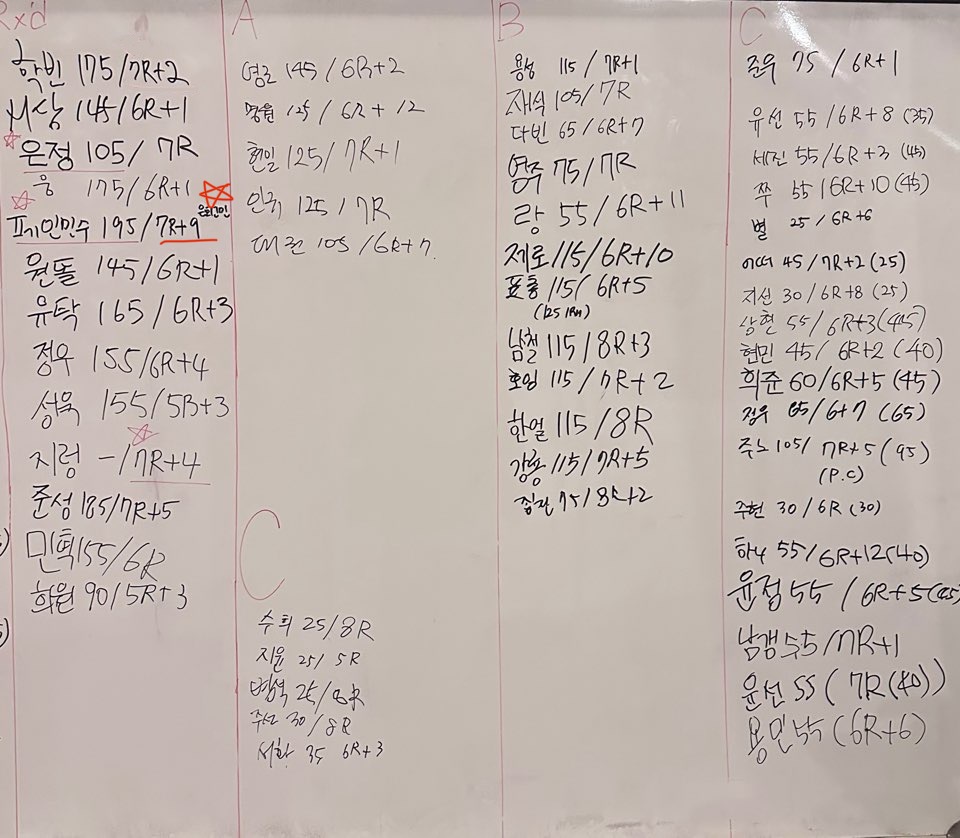 Rxd
학빈 175/7R+2
145/6R+1
은정 105/7R
웅 175/6R+1
민수 195/7R+9
원똘 145/6R+1
유탁 165/6R+3
정우 155/6R+4
성욱 155/5R+3
지렁 -/7R+4
준성 185/7R+5
민혁 155/6R
희원 90/5R+3
A
영근 145/6R+2
명원 125/6R+12
현일 125/7R+1
125/7R
105/6R+7
C
수희 25/8R
지윤 25/5R
병석 25/8R
30/8R
서화 35 6R+3
B
용성 115/7R+1
재식 105/7R
다빈 65/6R+7
영주 75/7R
랑 55/6R+11
제로 115/6R+10
표홍 115/6R+5
(125 1RM)
남철 115/8R+3
호잉 115/7R+2
한얼 115/8R
강용 115/7R+5
75/8R+2
C
준우 75/6R+1
유선 55/6R+8 (35)
세진 55/6R+3 (45)
쭈 55/6R+10 (45)
별 25/6R+6
45/7R+2 (25)
지신 30/6R+8 (25)
상현 55/6R+3 (45)
현민 45/6R+2 (40)
희준 60/6R+5 (45)
정우 85/6+7 (65)
주노 105/7R+5 (95)
(P.C)
주현 30/6R (30)
하니 55/6R+12 (40)
윤정 55/6R+5 (45)
남갱 55/7R+1
윤선 55 (7R(40))
용민 55 (6R+6)